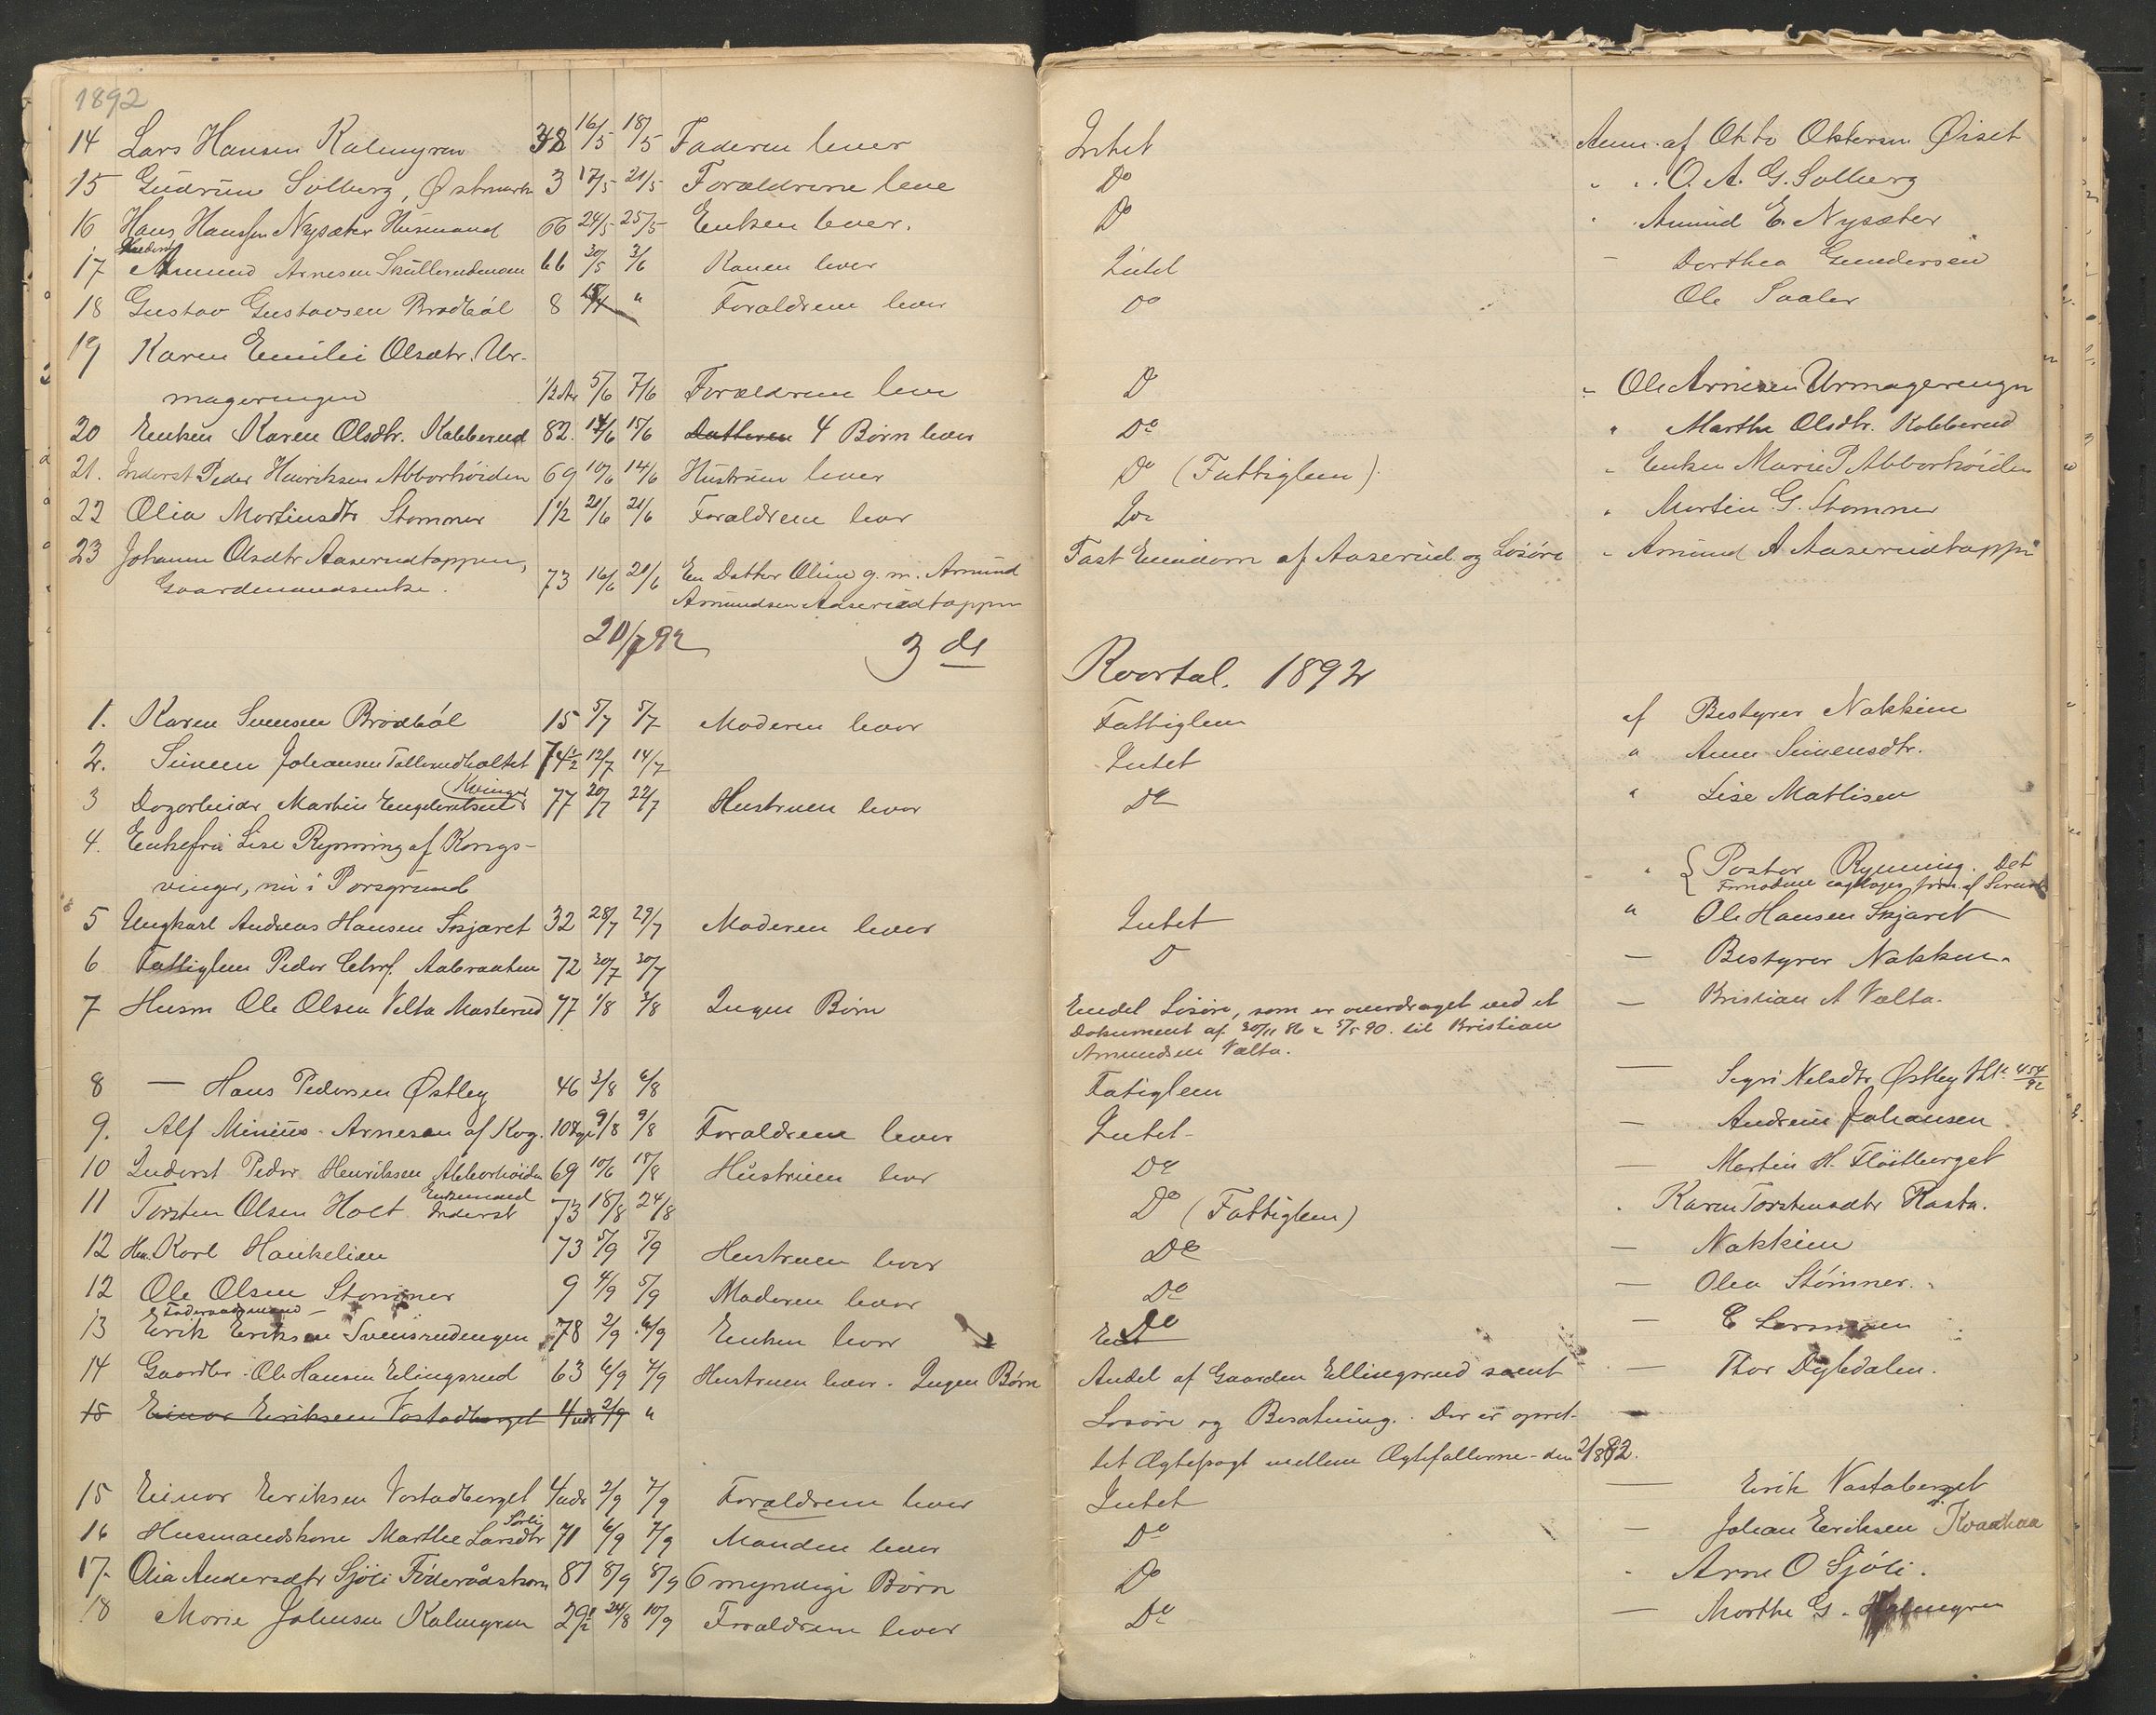 1892
14 Lars Hansen Kalmyren 38 16/5 18/5 Faderen lever Intet Anm. af Otto Ottersen Øiset
15 Gudrun Solberg, Østmark 3 17/5 21/5 Forældrene leve Do " " O. A. G. Solberg
16 Hans Hanssen Nysæter Husmand 66 24/5 25/5 Enken lever. Do " Amund E. Nysæter
17 Amund Arnesen Skullerudmoen 66 30/5 3/6 Konen lever Intet — Dorthea Gundersen
18 Gustav Gustavsen Brødbøl 8 " Forældrene lever Do Ole Saaler
19 Karen Emilie Olsdtr. Ur-
magerengen 1/2 Aar 5/6 7/6 Forældrene leve D " Ole Arnesen Urmagerengen
20 Enken Karen Olsdtr. Kobberud 82. 14/6 15/6 Datteren 4 Børn lever Do " Marthe Olsdtr. Kobberud
21. Inderst Peder Henriksen Abborhøiden 69 10/6 14/6 Hustruen lever Do (Fattiglem). " Enken Marie P Abborhöiden
22 Olia Martinsdtr Stommer 1 1/2 21/6 21/6 Forældrene lever Do " Martin G. Stommer
23 Johanne Olsdtr Aaserudtoppen, Fast Eiendom af Aaserud og Løsøre " Amund A Aaserudtoppen
Gaardmandsenke. 73 16/6 21/6 En Datter Oline g. m. Amund
Amundsen Aaserudtoppen
20/7 92 3 de Kvartal. 1892
1. Karen Svensen Brødbøl 15 5/7 5/7 Moderen lever Fattiglem af Bestyrer Nakkim
2. Simen Johansen Tallerudholtet 74 1/2 12/7 14/7 Intet " Anne Simensdtr.
3 Dagarbeider Martin Engebretsen (Kvinger) 77 20/7 22/7 Hustruen lever Do " Lise Mathisen
4. Enkefru Lise Rynning af Kongs-
vinger, nu i Porsgrund " { Pastor Rynning. Det
Fornødne iagttages af
5 Ungkarl Andreas Hansen Skjæret 32 28/7 29/7 Moderen lever Intet " Ole Hansen Skjæret
6 Fattiglem Peder Chrf. Aabraaten 72 30/7 30/7 D — Bestyrer Nakkim
7 Husm Ole Olsen Velta Masterud 77 1/8 3/8 Ingen Børn Endel Løsøre, som er overdraget ved et — Kristian A Velta.
Dokument af 30/11 86 & 5/5 90. til Kristian
Amundsen Velta.
8 — Hans Pedersen Østby 46 3/8 6/8 Fatiglem — Sigri Nilsdtr Østby 454/92
9. Alf Minius Arnesen af Kvg. 10 Dge 9/8 9/8 Forældrene lever Intet — Andrine Johansen
10 Inderst Peder Henriksen Abborhøiden 69 10/6 18/8 Hustruen lever Do — Martin H. Fløitberget
11 Torsten Olsen Holt Enkemand Inderst 73 18/8 24/8 Do (Fattiglem) " Karen Torstensdtr Rasta.
12 Hm. Karl Hankelien 73 5/9 5/9 Hustruen lever Do — Nakkim
12 Ole Olsen Stommer 9 4/9 5/9 Moderen lever Do — Olea Stömner.
13 Føderaadsmand Erik Eriksen Svensrudengen 78 2/9 6/9 Enken lever Do — E Larsmoen
14 Gaardbr. Ole Hansen Elingsrud 63 6/9 7/9 Hustruen lever. Ingen Børn Andel af Gaarden Ellingsrud samt — Thor Dybedalen.
15 Einar Eriksen Vastadberget 4 Udr 2/9 " Løsøre og Besætning. Der er opret- —
tet Ægtepagt mellem Ægtefællerne den 2/8 82.
15 Einar Eriksen Vastadberget 4 Udr 2/9 7/9 Forældrene lever Intet — Erik Vastaberget
16 Husmandskone Marthe Larsdtr Sorli 71 6/9 7/9 Manden lever Do — Johan Eriksen Kvaahaa
17. Olia Andersdtr Sjöli Föderådskone 87 8/9 8/9 6 myndige Børn Do " Arne O Sjöli.
18 Marie Johnsen Kalmyren 29 1/2 24/8 10/9 Forældrene lever Do — Marthe G. Kalmyren